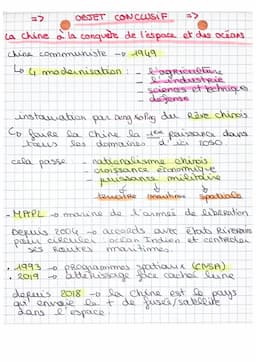 => OBJET CONCLUSIF =>
La Chine à la conquête de l'espace et des océans
Chine communiste -> 1949
↳ 4 modernisation : - l'agriculture
- l'industrie
- sciences et techniques
- défense
instauration par Deng du Rêve chinois
↳ faire la Chine la 1ère puissance dans
tous les domaines d'ici 2050
cela passe - nationalisme chinois
- croissance économique
- puissance militaire
terrestre maritime spatiale
- MAPL -> marine de l'armée de libération
Depuis 2004 -> accords avec états Riverains
pour circuler océan Indien et contrôler
ses routes maritimes.
. 1993 -> programmes spatiaux (CNSA)
. 2019 -> atterrissage face cachée lune
depuis 2018 -> la Chine est le pays
qui envoie le + de fusée/satellite
dans l'espace